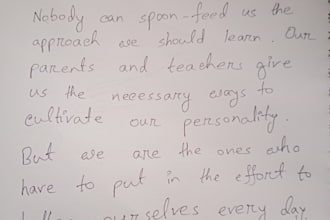 Nobody can spoon-feed us the
approach we should learn. Our
parents and teachers give
us the necessary ways to
cultivate our personality.
But we are the ones who
have to put in the effort to
ourselves every day